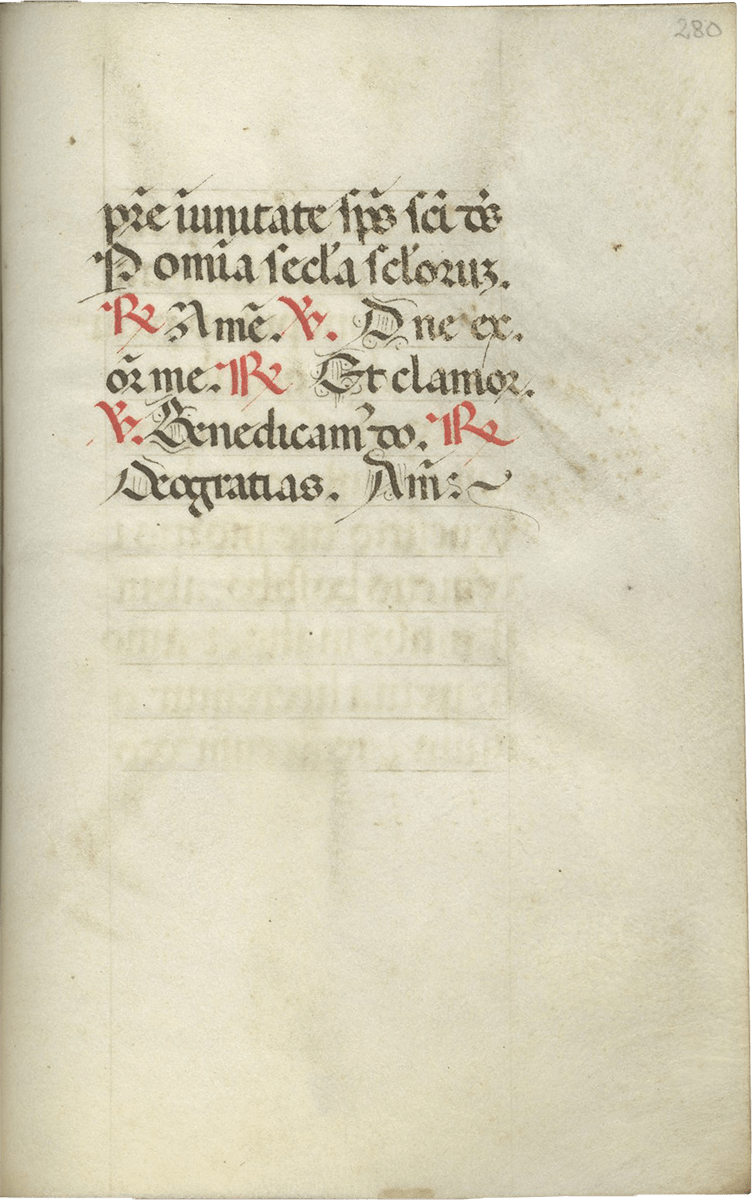 280
pr̄e i unitate sp̄s sc̄i d̄s
P om̄ia secl̄a sc̄loruꝫ.
℟ Amē. ℣. Dn̄e ex.
or̄ me. ℟ Et clamor.
℣. Benedicam̄ do. ℟
Deo gratias. Am̄:~